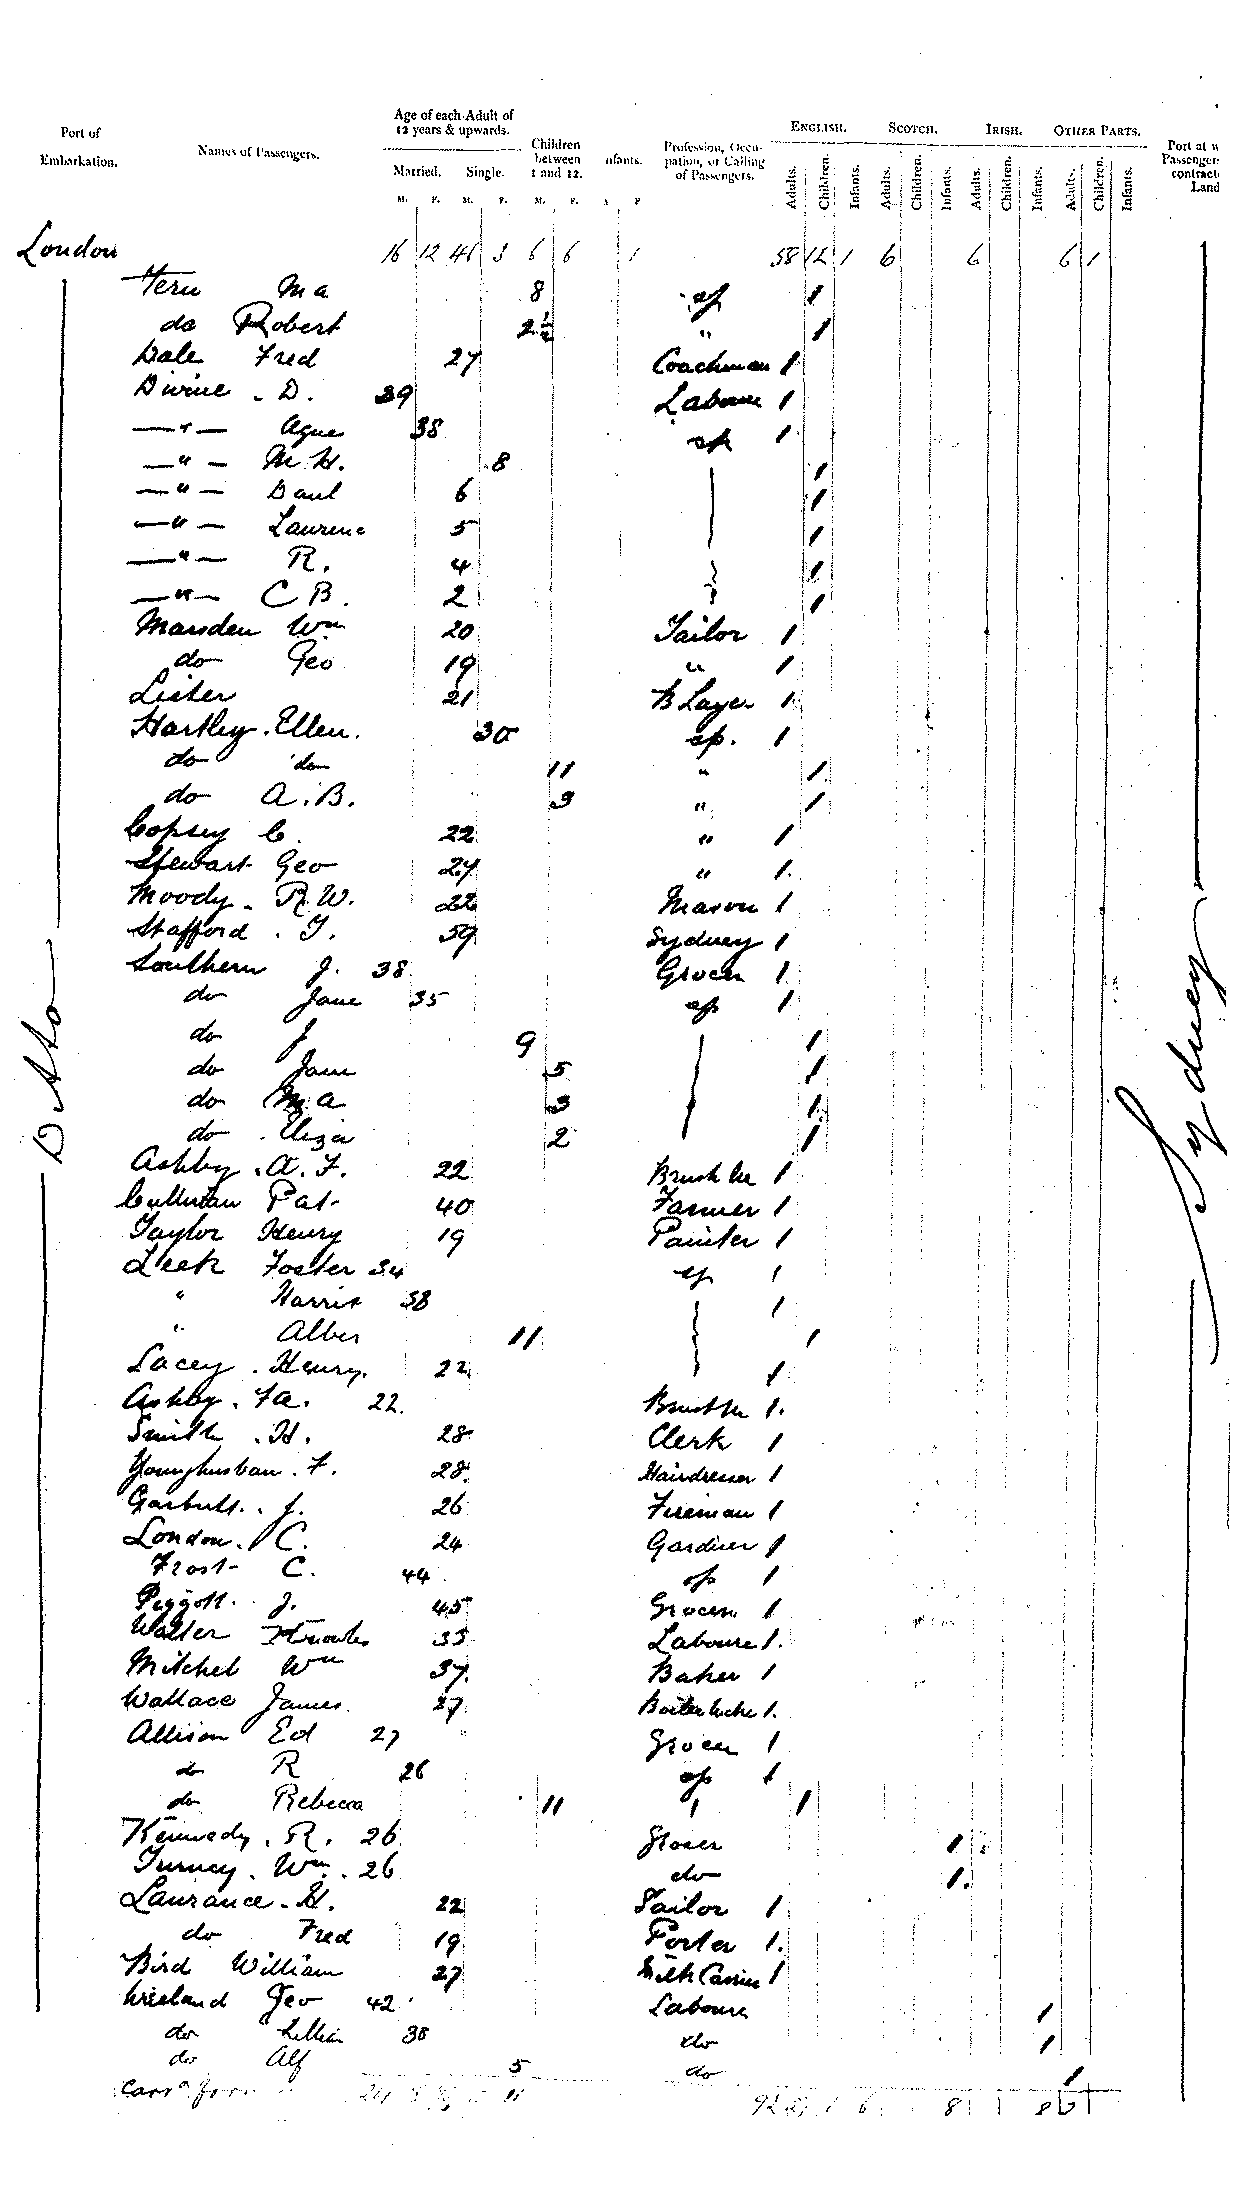 Port of Embarkation. Names of Passengers. Age of each Adult of 12 years & upwards. Married. Single. Children between 1 and 12. nfants. Profession, Occupation, or Calling of Passengers. ENGLISH. SCOTCH. IRISH. OTHER PARTS. Port at w Passenger contract Land
M. F. M. F. M. F. F Adults. Children. Infants. Adults. Children. Infants. Adults. Children. Infants. Adults. Children. Infants.
London 16 12 46 3 6 6 1 58 12 1 6 6 6 1
Ditto
Sydney
Ma 8 1
do Robert 2½ " 1
Dale Fred 27 Coachman 1
Divine . D. 39 Laboure 1
—"— Agne 38 1
—"— M.H. 8 1
—"— Daul 6 1
—"— Laurenc 5 1
—"— R. 4 1
—"— C B. 2 1
Marsden Wm 20 Tailor 1
do Geo 19 " 1
Lister 21 B Laye 1
Hartley . Ellen. 30 1
do do 11 " 1
do A.B. 9 " 1
Copsey C. 22 " 1
Stewart Geo 27 " 1.
Moody. R.W. 22 Mason 1
Stafford . T. 59 Sydney 1
Southern J. 38 Grocer 1
do Jane 35 1
do J 9 1
do Jane 5 1
do Ma 3 1
do . Eliza 2 1
Ashby . A. F. 22 Brush 1
Pat 40 Farmer 1
Taylor Henry 19 Painter 1
Leek Foster 34 1
" Harrie 38 1
" Alber 11 1
Lacey . Henry. 22 1
Ashby . Fa. 22. 1.
Smith . H. 28 Clerk 1
Younghusban . F. 28 Hairdresser 1
Garbutt. . J. 26 Fireman 1
London. C. 24 Gardner 1
Frost C. 44 1
Piggott J. 45 Grocer 1
Walter 35 Laboure 1.
Mitchel Wm 37 Baker 1
Wallace James 27 1.
Allison Ed 27 Grocer 1
do R 26 1
do Rebecca 11 1
Kennedy . R. 26 1
Turney . Wm. 26 do 1.
Laurance . H. 22 Tailor 1
do Fred 19 Porter 1.
Bird William 27 Milk Carrier 1
Geo 42 Laboure 1
do Lillian 38 do 1
do Alf 5 do 1
8